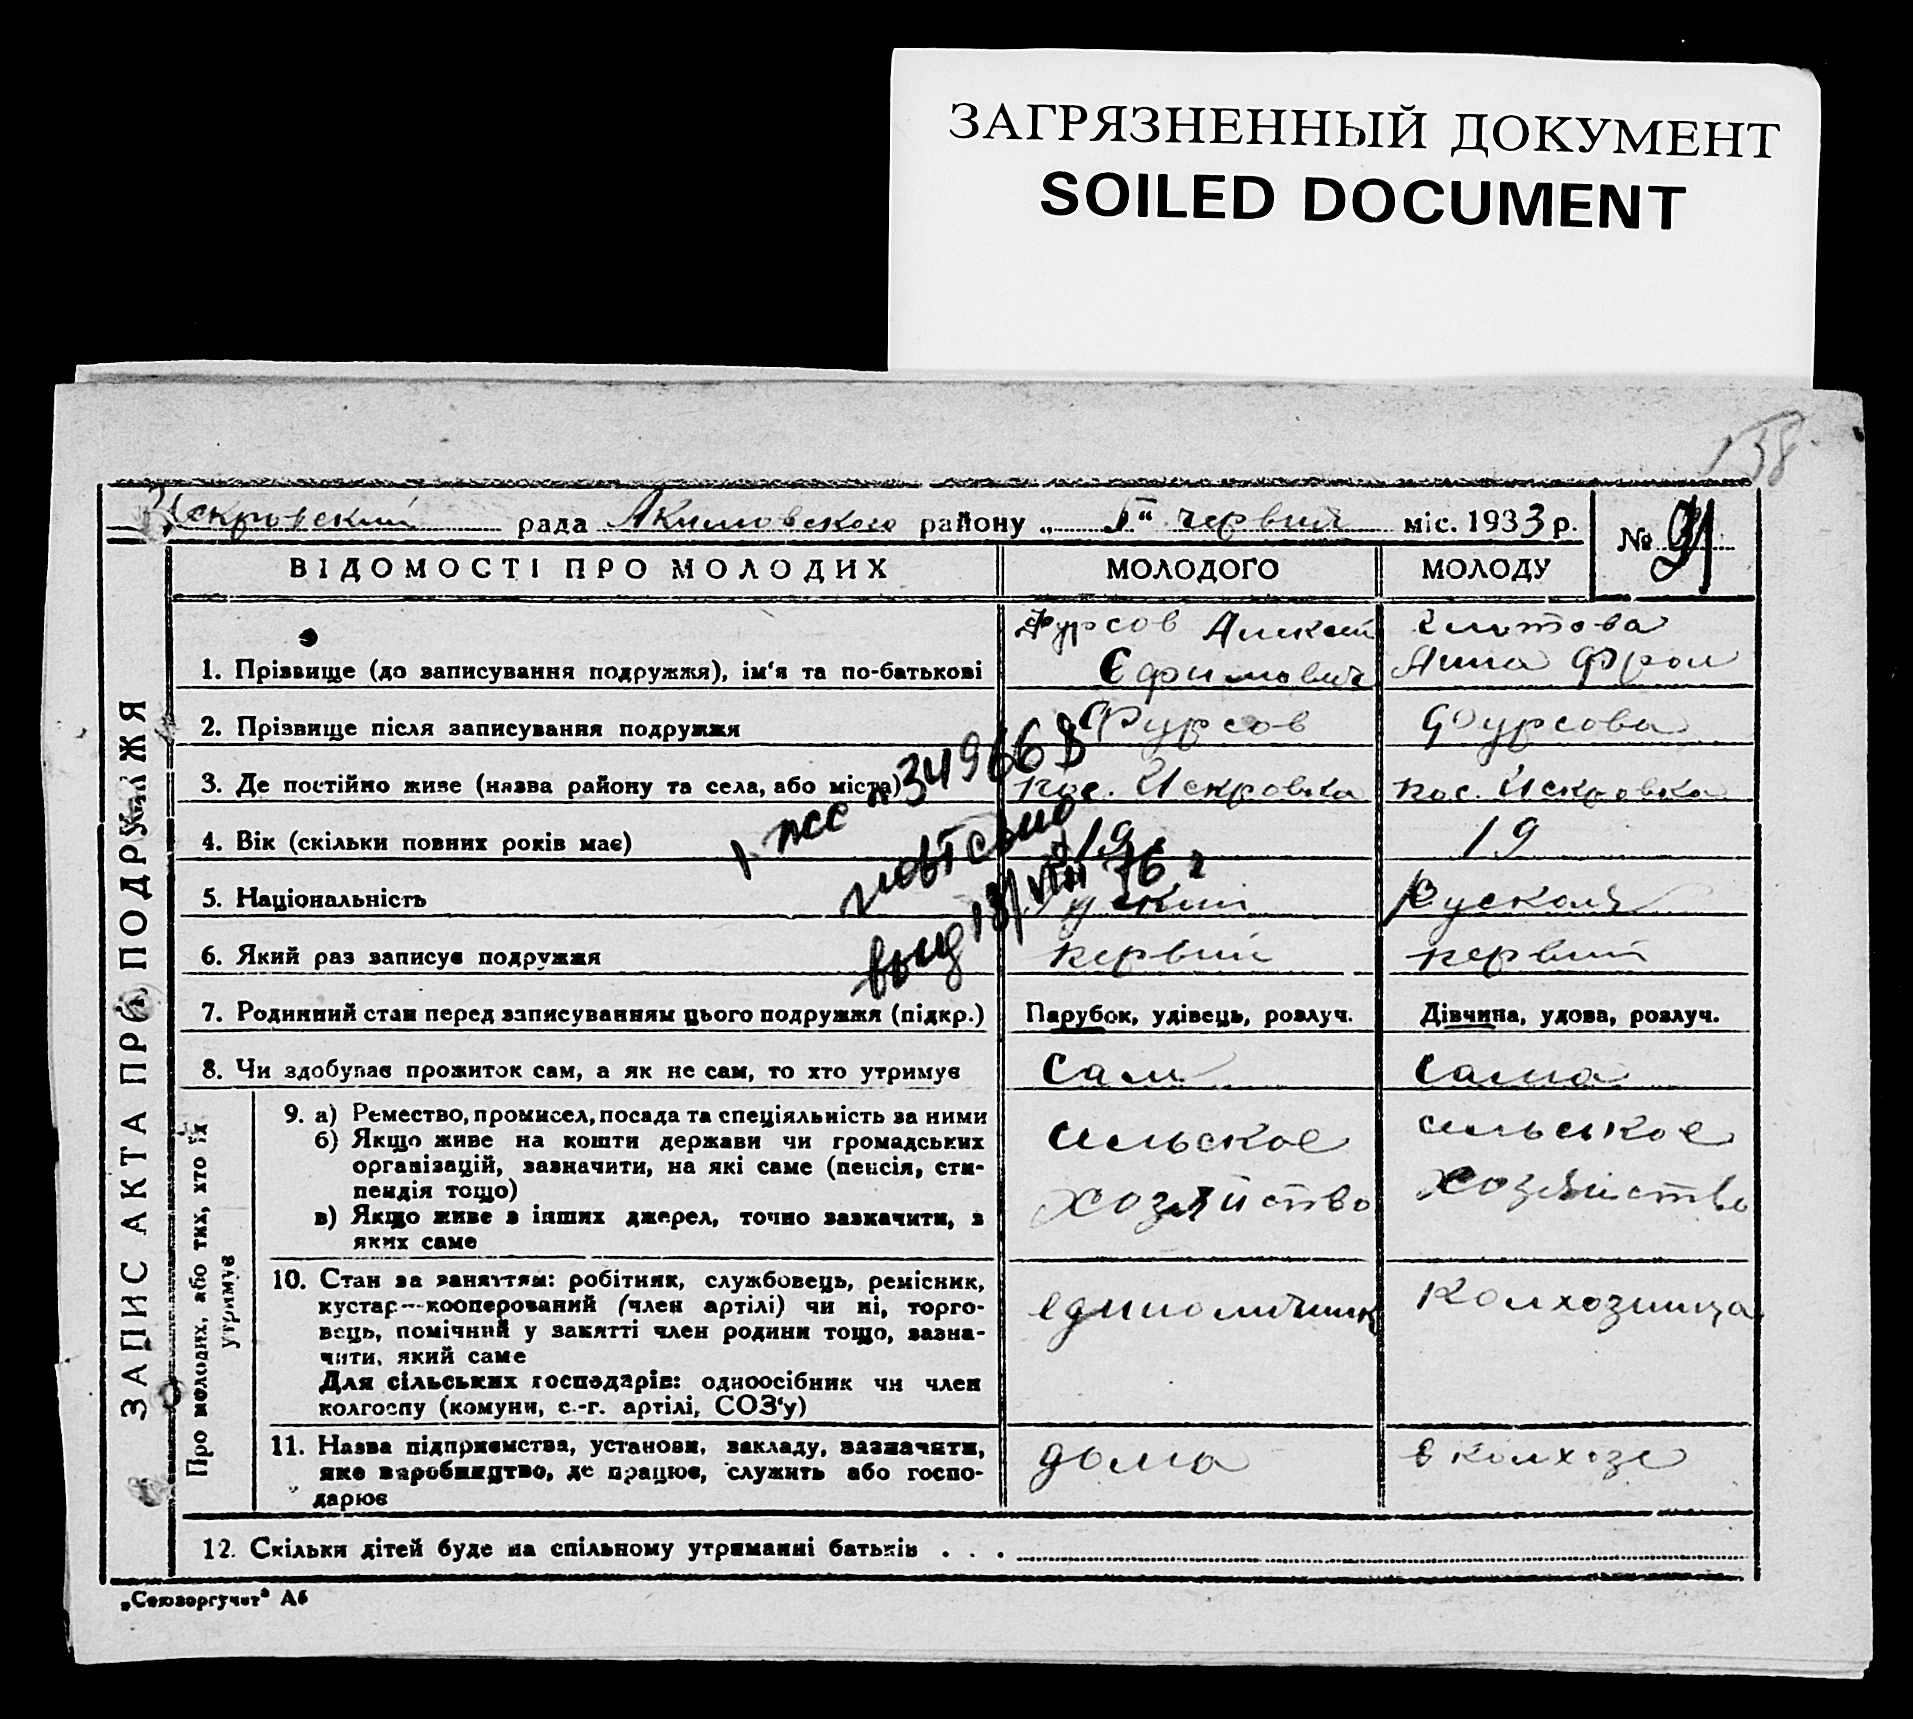 ЗАГРЯЗНЕННЫЙ ДОКУМЕНТ
SOILED DOCUMENT
158
Искровский рада Акимовского району „ 5 “ червня міс. 1933 р. № 31
ВІДОМОСТІ ПРО МОЛОДИХ МОЛОДОГО МОЛОДУ
ЗАПИС АКТА ПРО ПОДРУЖЖЯ
1. Прізвище (до записування подружжя), ім'я та по-батькові
Фурсов Алексей
Єфимович
Анна Фрол
2. Прізвище після записування подружжя Фурсов Фурсова
3. Де постійно живе (назва району та села, або міста) пос. Искровка пос. Искровка
4. Вік (скільки повних років має) 19 19
5. Національність Руская
6. Який раз записує подружжя первий первий
7. Родинний стан перед записуванням цього подружжя (підкр.) Парубок, удівець, розлуч. Дівчина, удова, розлуч.
8. Чи здобуває прожиток сам, а як не сам, то хто утримує Сам Сама
Про молодих, або тих, хто їх
утримує
9. а) Ремество, промисел, посада та спеціяльність за ними
б) Якщо живе на кошти держави чи громадських
організацій, зазначити, на які саме (пенсія, сти-
пендія тощо)
в) Якщо живе з інших джерел, точно зазначити, з
яких саме
сельское
хозяйство
сельское
хозяйство
10. Стан за заняттям: робітник, службовець, ремісник,
кустар—кооперований (член артілі) чи ні, торго-
вець, помічний у занятті член родини тощо, зазна-
чити, який саме
Для сільських господарів: одноосібник чи член
колгоспу (комуни, с.-г. артілі, СОЗ'у)
единоличник
Колхозница
11. Назва підприємства, установи, закладу, зазначити,
яке виробництво, де працює, служить або госпо-
дарює
дома
в колхозе
12. Скільки дітей буде на спільному утриманні батьків . . .
„Союзоргучет" А6
№ 349668
выд 13/VIII 76 г